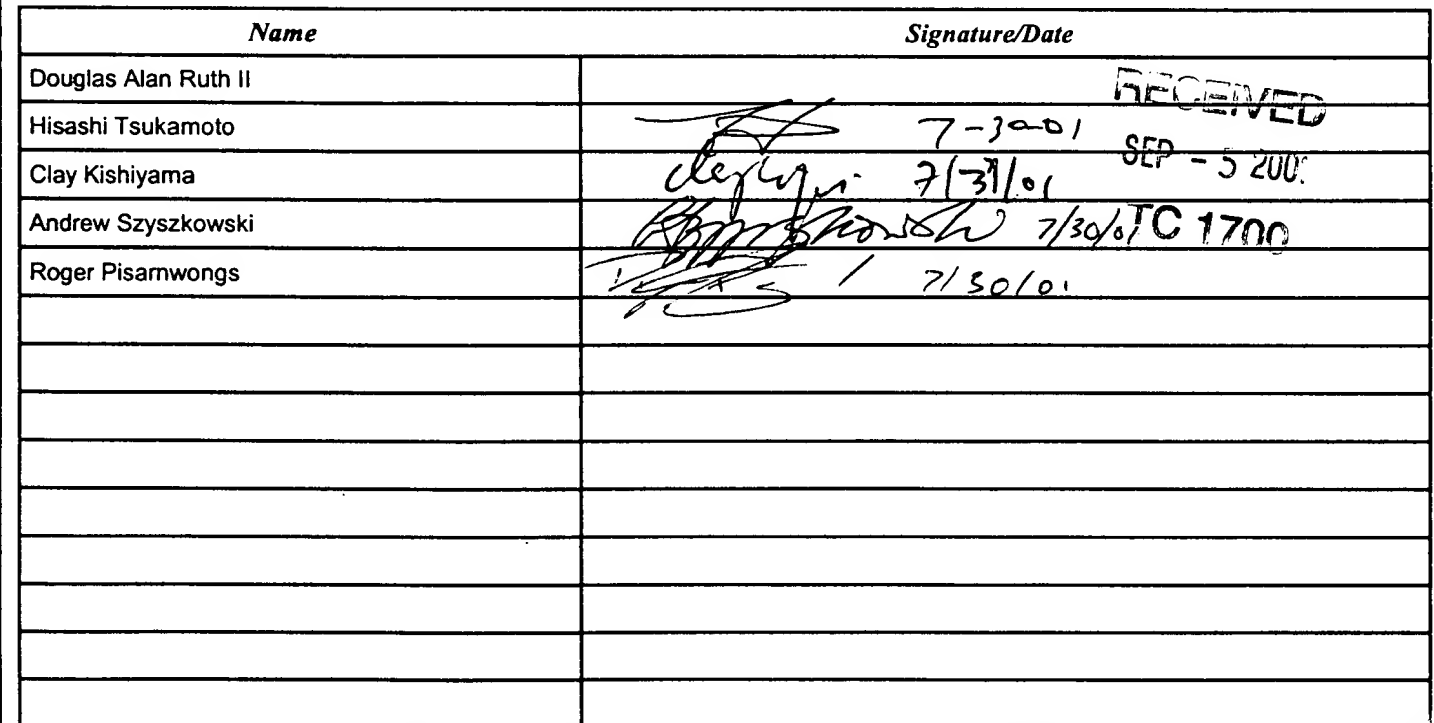 Name Signature/Date
Douglas Alan Ruth II
RECEIVED
Hisashi Tsukamoto 7-30-01
SEP - 5 200
Clay Kishiyama 7/31/01
Andrew Szyszkowski 7/30/01 TC 1700
Roger Pisarnwongs 7/30/01